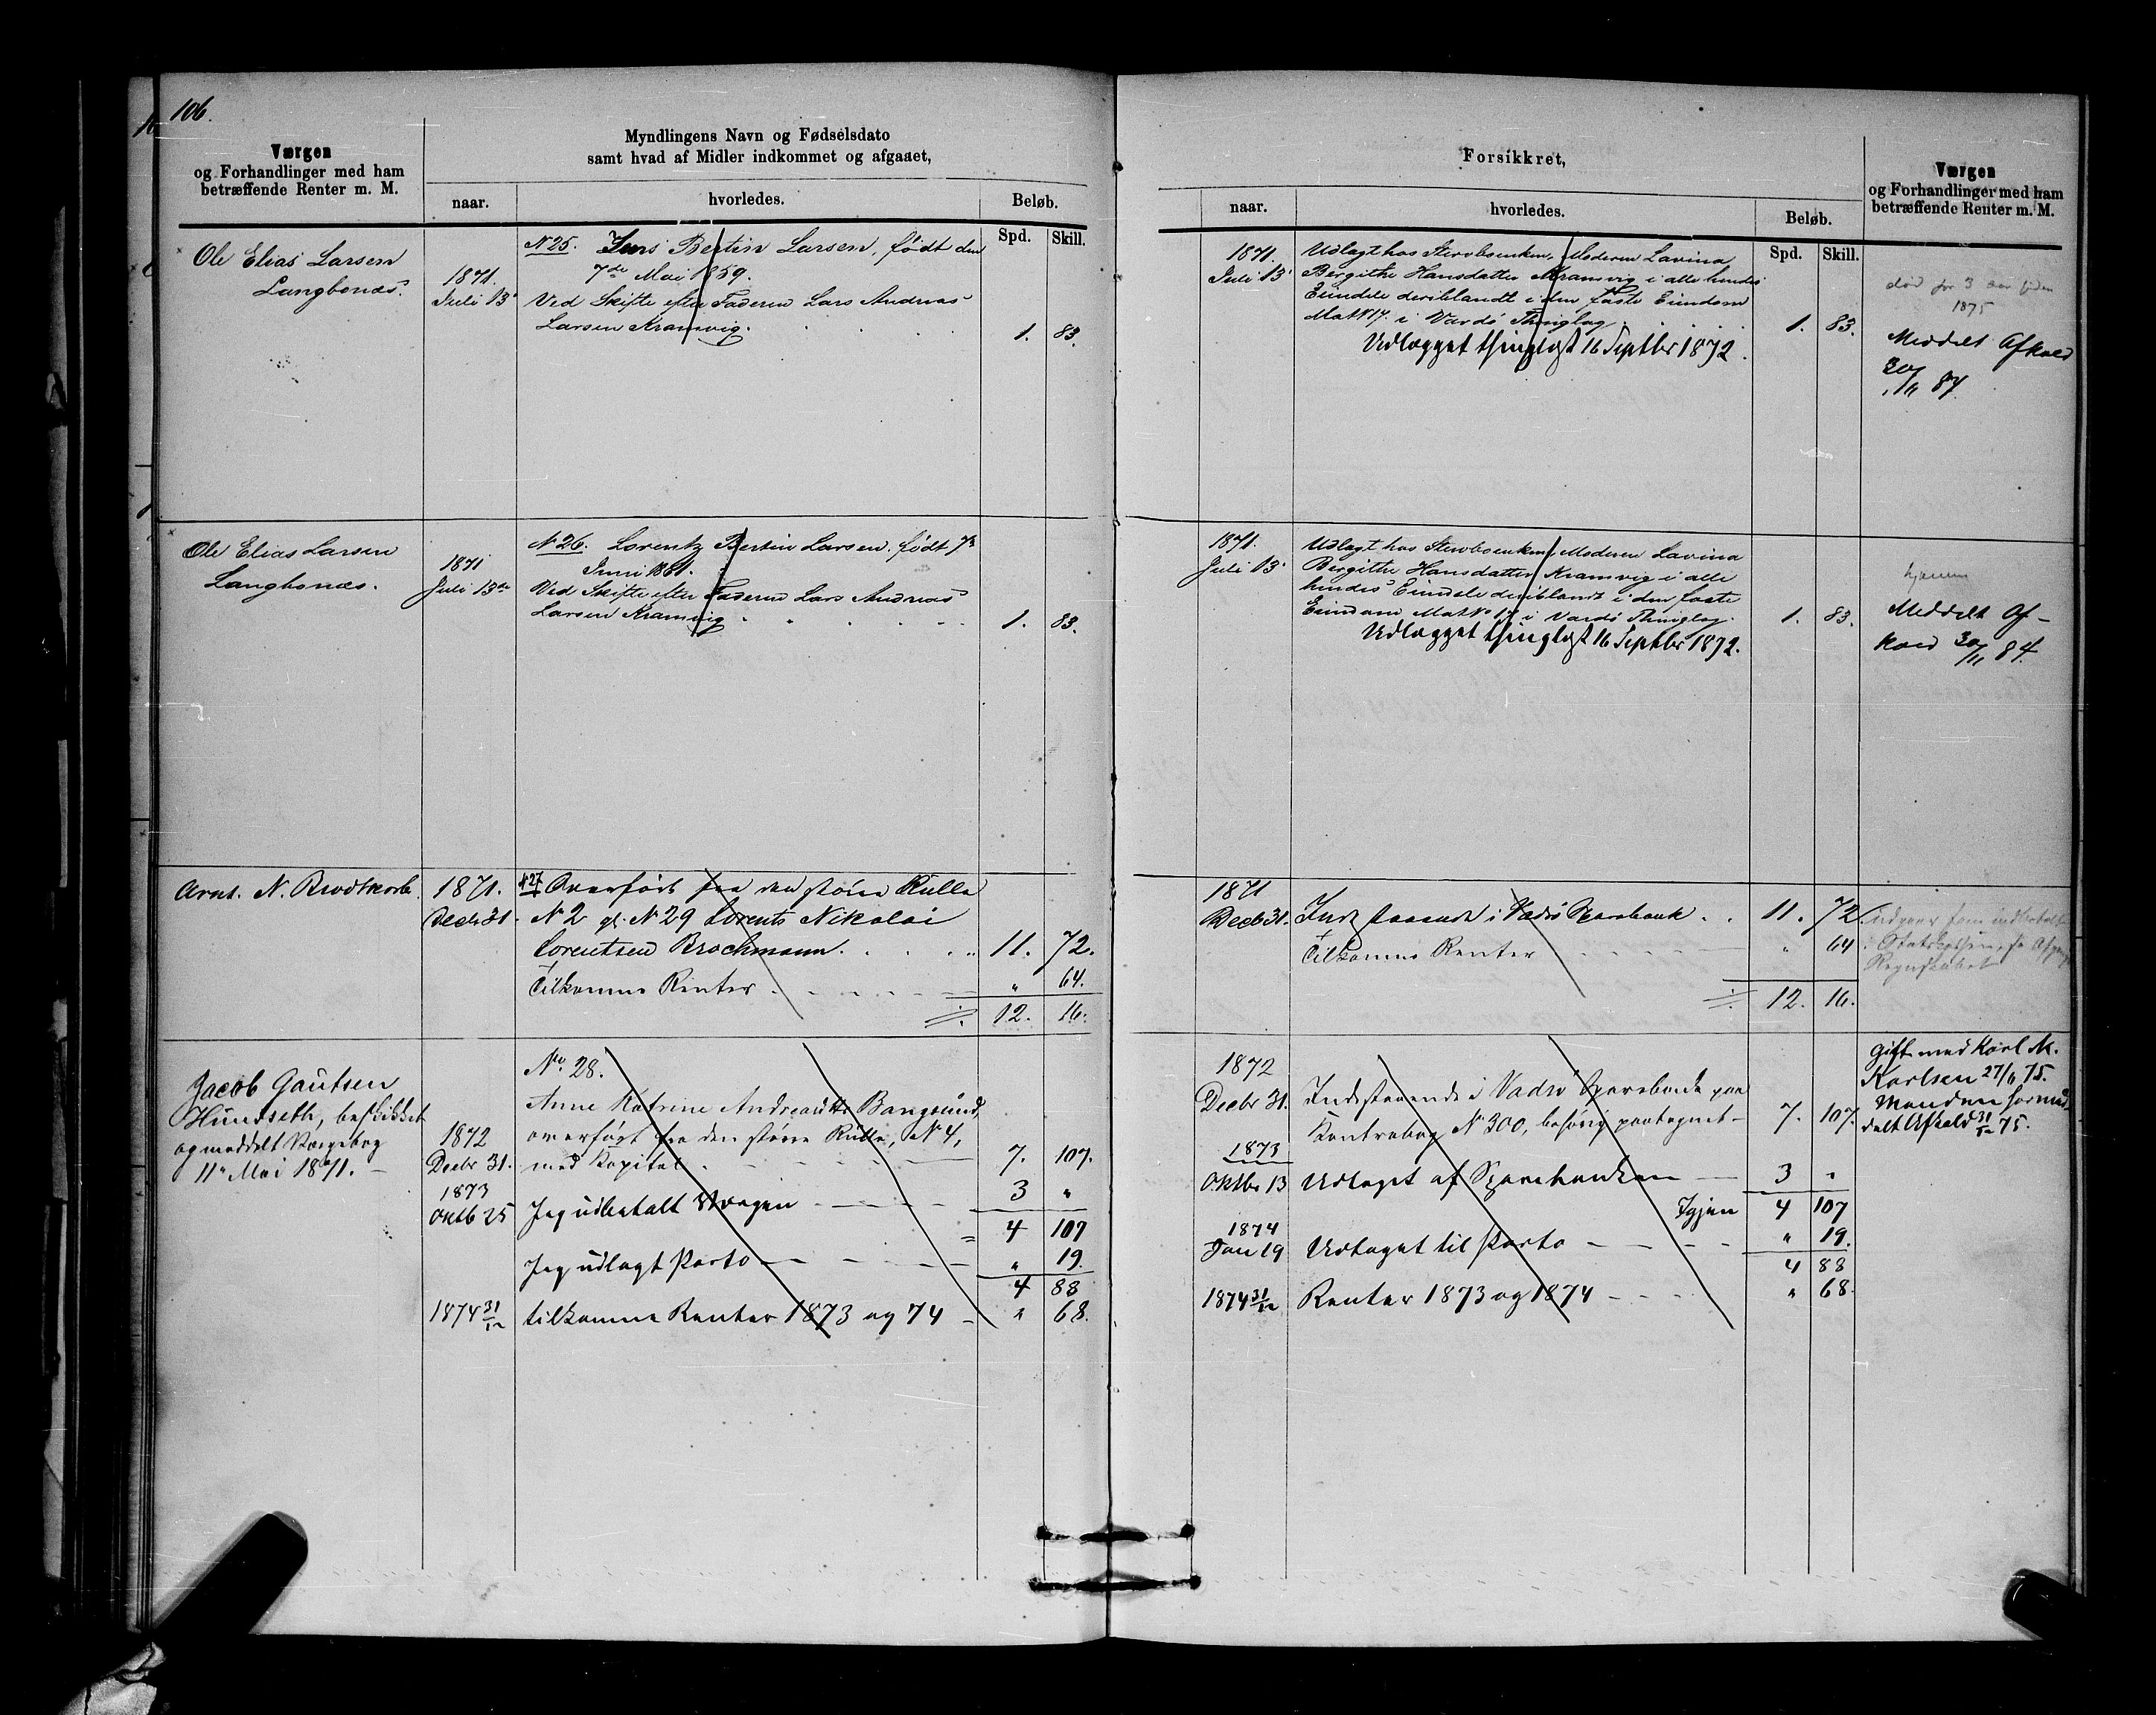 106.
Værgen
og Forhandlinger med ham
betræffende Renter m. M.
Myndlingens Navn og Fødselsdato
samt hvad af Midler indkommet og afgaaet,
naar.
hvorledes.
Beløb.
Spd. Skill.
Ole Elias Larsen
Langbonæs.
1871.
Juli 13
N 25. Jens Bertin Larsen, født den
7de Mai 1859.
Ved Skifte efter Faderen Lars Andreas
Larsen Kramvig. 1. 83.
Ole Elias Larsen
Langbonæs.
1871
Juli 13de
N 26. Lorentz Bertin Larsen, født 7de
Juni 1861.
Ved Skifte efter Faderen Lars Andreas
Larsen Kramvig 1. 83.
Arnt. N. Brodtkorb.
1871.
Decbr 31.
N 27 Overført fra den større Rulle
N 2 gl. N 29 Lorents Nikolai
Lorentsen Brochmann. 11. 72.
Tilkomne Renter " 64.
12. 16.
Jacob Gautsen
Hundseth, beskikket
og meddelt Værgebog
11te Mai 1871. -
No. 28.
Anne Katrine Andreasdtr Bangsund,
1872
overført fra den større Rulle, N 4,
Decbr 31. med Kapital 7. 107.
1873
3 "
Oktb 25 Jeg udbetalt Værgen
4 107
Jeg udlagt Porto " 19.
4 88
1874 31/12 tilkomne Renter 1873 og 74 " 68.
Forsikkret,
naar.
hvorledes.
Beløb.
Spd. Skill.
Værgen
og Forhandlinger med ham
betræffende Renter m. M.
1871.
Juli 13
Udlagt hos Stervboenken, Moderen Lavina
Bergithe Hansdatter Kramvig i alle hendes
Eiendele deriblandt i den faste Eiendom
Mat N 17. i Vardø Thinglag. 1. 83.
Udlægget thinglæst 16 Septbr 1872.
død for 3 aar siden
1875
Meddelt Afkald
20/11 84.
1871.
Juli 13
Udlagt hos Stervboenken, Moderen Lavina
Bergithe Hansdatter Kramvig i alle
hendes Eiendele deriblandt i den faste
Eiendom Mat No 17 i Vardø Thinglag. 1. 83.
Udlægget thinglæst 16 Septbr 1872.
hjemme
Meddelt Af-
kald 20/11 84.
1871
Decb 31. Indestaaende i Vadsø Sparebank 11. 72.
Tilkomne Renter " 64
12. 16.
Statskassen,
Regnskabet
1872
Decbr 31. Indestaaende i Vadsø Sparebank paa
Kontrabog N 300, behørig paategnet 7. 107.
1873
Oktbr 13 Udtaget af Sparebanken 3 "
Igjen 4 107
1874
Jan 19 Udtaget til Porto " 19.
4 88
1874 31/12 Renter 1873 og 1874 " 68.
Gift med Karl M.
Karlsen 27/6 75.
Manden har med-
delt Afkald 31/12 75.